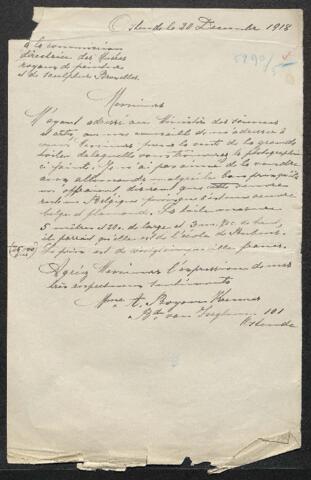 Ostende le 20 Decembre 1918
à la commission
directrice des Musées
royaux de peinture
et de sculpture Bruxelles.
5290/5
Messieurs
M'ayant adressé au Ministère des sciences
et arts, on me conseille de m'adresser à
vous Messieurs, pour la vente de la grande
toile de laquelle vous trouverez la photographie
ci-jointe. Je n'ai pas voulu la vendre
aux allemands malgré le bon prix qu'ils
m'offraient, désirant que cette œuvre
reste en Belgique puisque c'est une œuvre
belge et flamande. La toile mesure
5 mètres 20 c. de large et 3 m. 75 c. de haut,
il paraît qu'elle est de l'école de Rubens.
Le prix est de vingt cinq mille francs.
Agréez Messieurs l'expression de mes
très respectueux sentiments
Mme A. Royon
Bd van Iseghem 101
Ostende